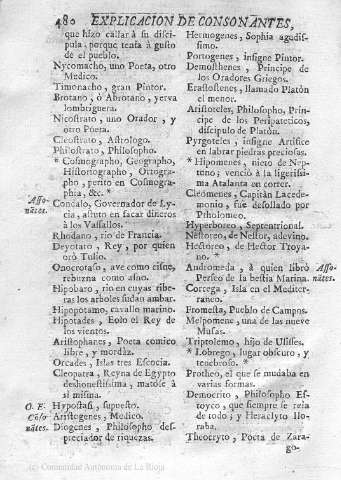 480 EXPLICACION DE CONSONANTES,
que hizo callar à su disci-
pula, porque tenia à gusto
de el pueblo.
Nycomacho, uno Poeta, otro
Medico.
Timonacho, gran Pintor.
Brotano, ò Abrotano, yerva
lombriguera.
Nicostrato, uno Orador, y
otro Poeta.
Cleostrato, Astrologo.
Philostrato, Philosopho.
* Cosmographo, Geographo,
Historiographo, Ortogra-
pho, perito en Cosmogra-
phia, &c. *
Asso-
nātes.
Condalo, Governador de Ly-
cia, astuto en sacar dineros
à los Vassallos.
Rhodano, rio de Francia.
Deyotaro, Rey, por quien
orò Tulio.
Onocrotaso, ave como cisne,
rebuzna como asno.
Hipobaro, rio en cuyas ribe-
ras los arboles sudan ambar.
Hipopotamo, cavallo marino.
Hipotades, Eolo el Rey de
los vientos.
Aristophanes, Poeta comico
libre, y mordàz.
Orcades, Islas tres Escocia.
Cleopatra, Reyna de Egypto
deshonestissima, matòse à
sì misma.
O. E.
Cōso
nātes.
Hypostasi, supuesto.
Aristogenes, Medico.
Diogenes, Philosopho des-
preciador de riquezas.
Hermogenes, Sophia agudis-
simo.
Portogenes, insigne Pintor.
Demosthenes, Principe de
los Oradores Griegos.
Erastostenes, llamado Platòn
el menor.
Aristoteles, Philosopho, Prin-
cipe de los Peripateticos,
discipulo de Platòn.
Pyrgoteles, insigne Artifice
en labrar piedras preciosas.
* Hipomenes, nieto de Nep-
tuno; venciò à la ligerissi-
ma Atalanta en correr.
Cleomenes, Capitàn Lacede-
monio, fue desollado por
Ptholomeo.
Hyperboreo, Septentrional.
Nestoreo, de Nestor, adevino.
Hectoreo, de Hector Troya-
no. *
Andromeda, à quien librò
Perseo de la bestia Marina.
Asso-
nātes.
Corcega, Isla en el Mediter-
raneo.
Fromesta, Pueblo de Campos.
Melpomene, una de las nueve
Musas.
Triptolemo, hijo de Ulisses.
* Lobrego, lugar obscuro, y
tenebroso. *
Protheo, el que se mudaba en
varias formas.
Democrito, Philosopho Es-
toyco, que siempre se reìa
de todo; y Heraclyto llo-
raba.
Theocryto, Poeta de Zara-
go-
(c) Comunidad Autónoma de La Rioja